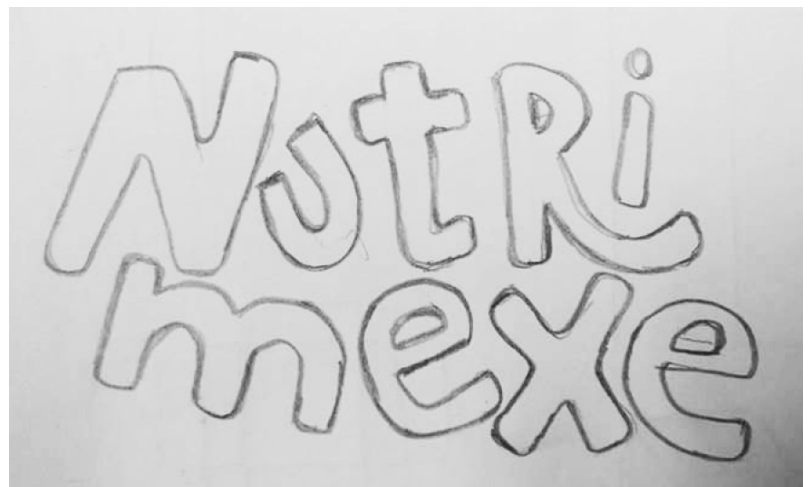 NutRi
mexe